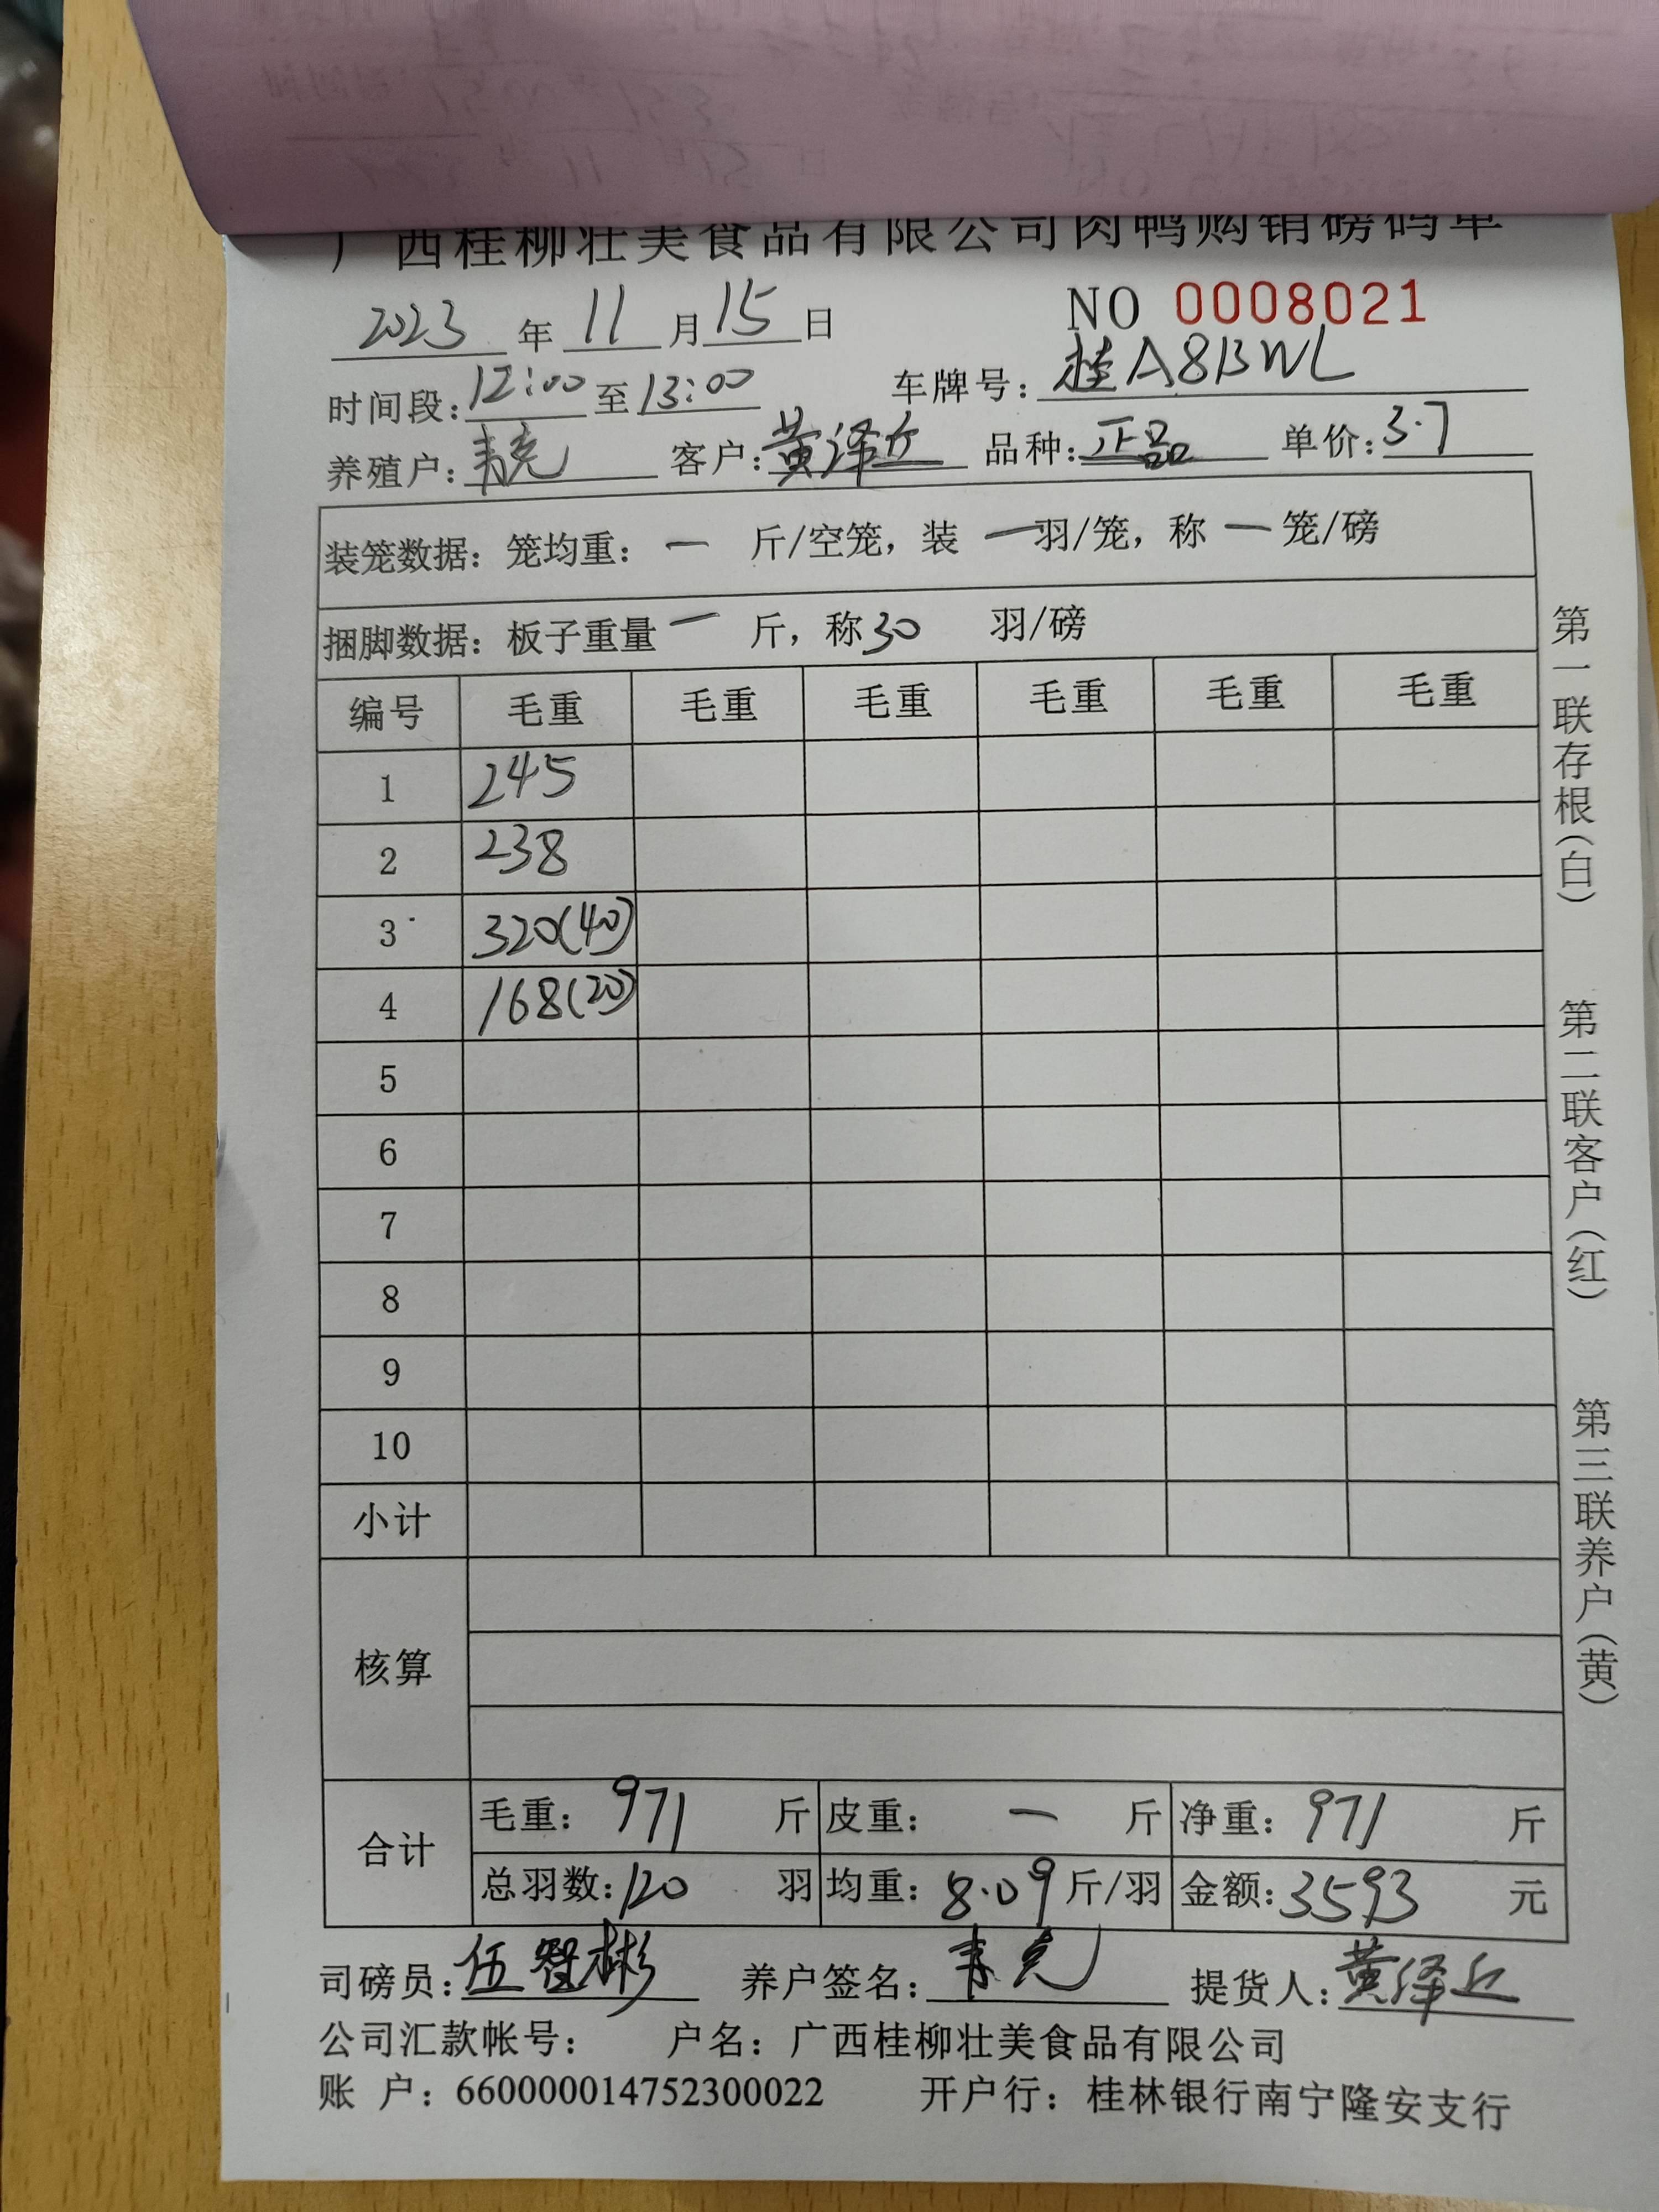 广西桂柳壮美食品有限公司肉鸭购销磅码单
2023 年 11 月 15 日 NO 0008021
时间段：12:00 至 13:00 车牌号：桂A8BWL
养殖户：韦克 客户：黄泽丘 品种：正品 单价：3.7
装笼数据：笼均重：一 斤/空笼，装 一 羽/笼，称 一 笼/磅
捆脚数据：板子重量 一 斤，称 30 羽/磅
编号 毛重 毛重 毛重 毛重 毛重 毛重
1 245
2 238
3 320(40)
4 168(20)
5
6
7
8
9
10
小计
核算
合计
毛重：971 斤 皮重：一 斤 净重：971 斤
总羽数：120 羽 均重：8.09 斤/羽 金额：3593 元
司磅员：伍智彬 养户签名：韦克 提货人：黄泽丘
公司汇款帐号： 户名：广西桂柳壮美食品有限公司
账 户：660000014752300022 开户行：桂林银行南宁隆安支行
第一联存根（白） 第二联客户（红） 第三联养户（黄）